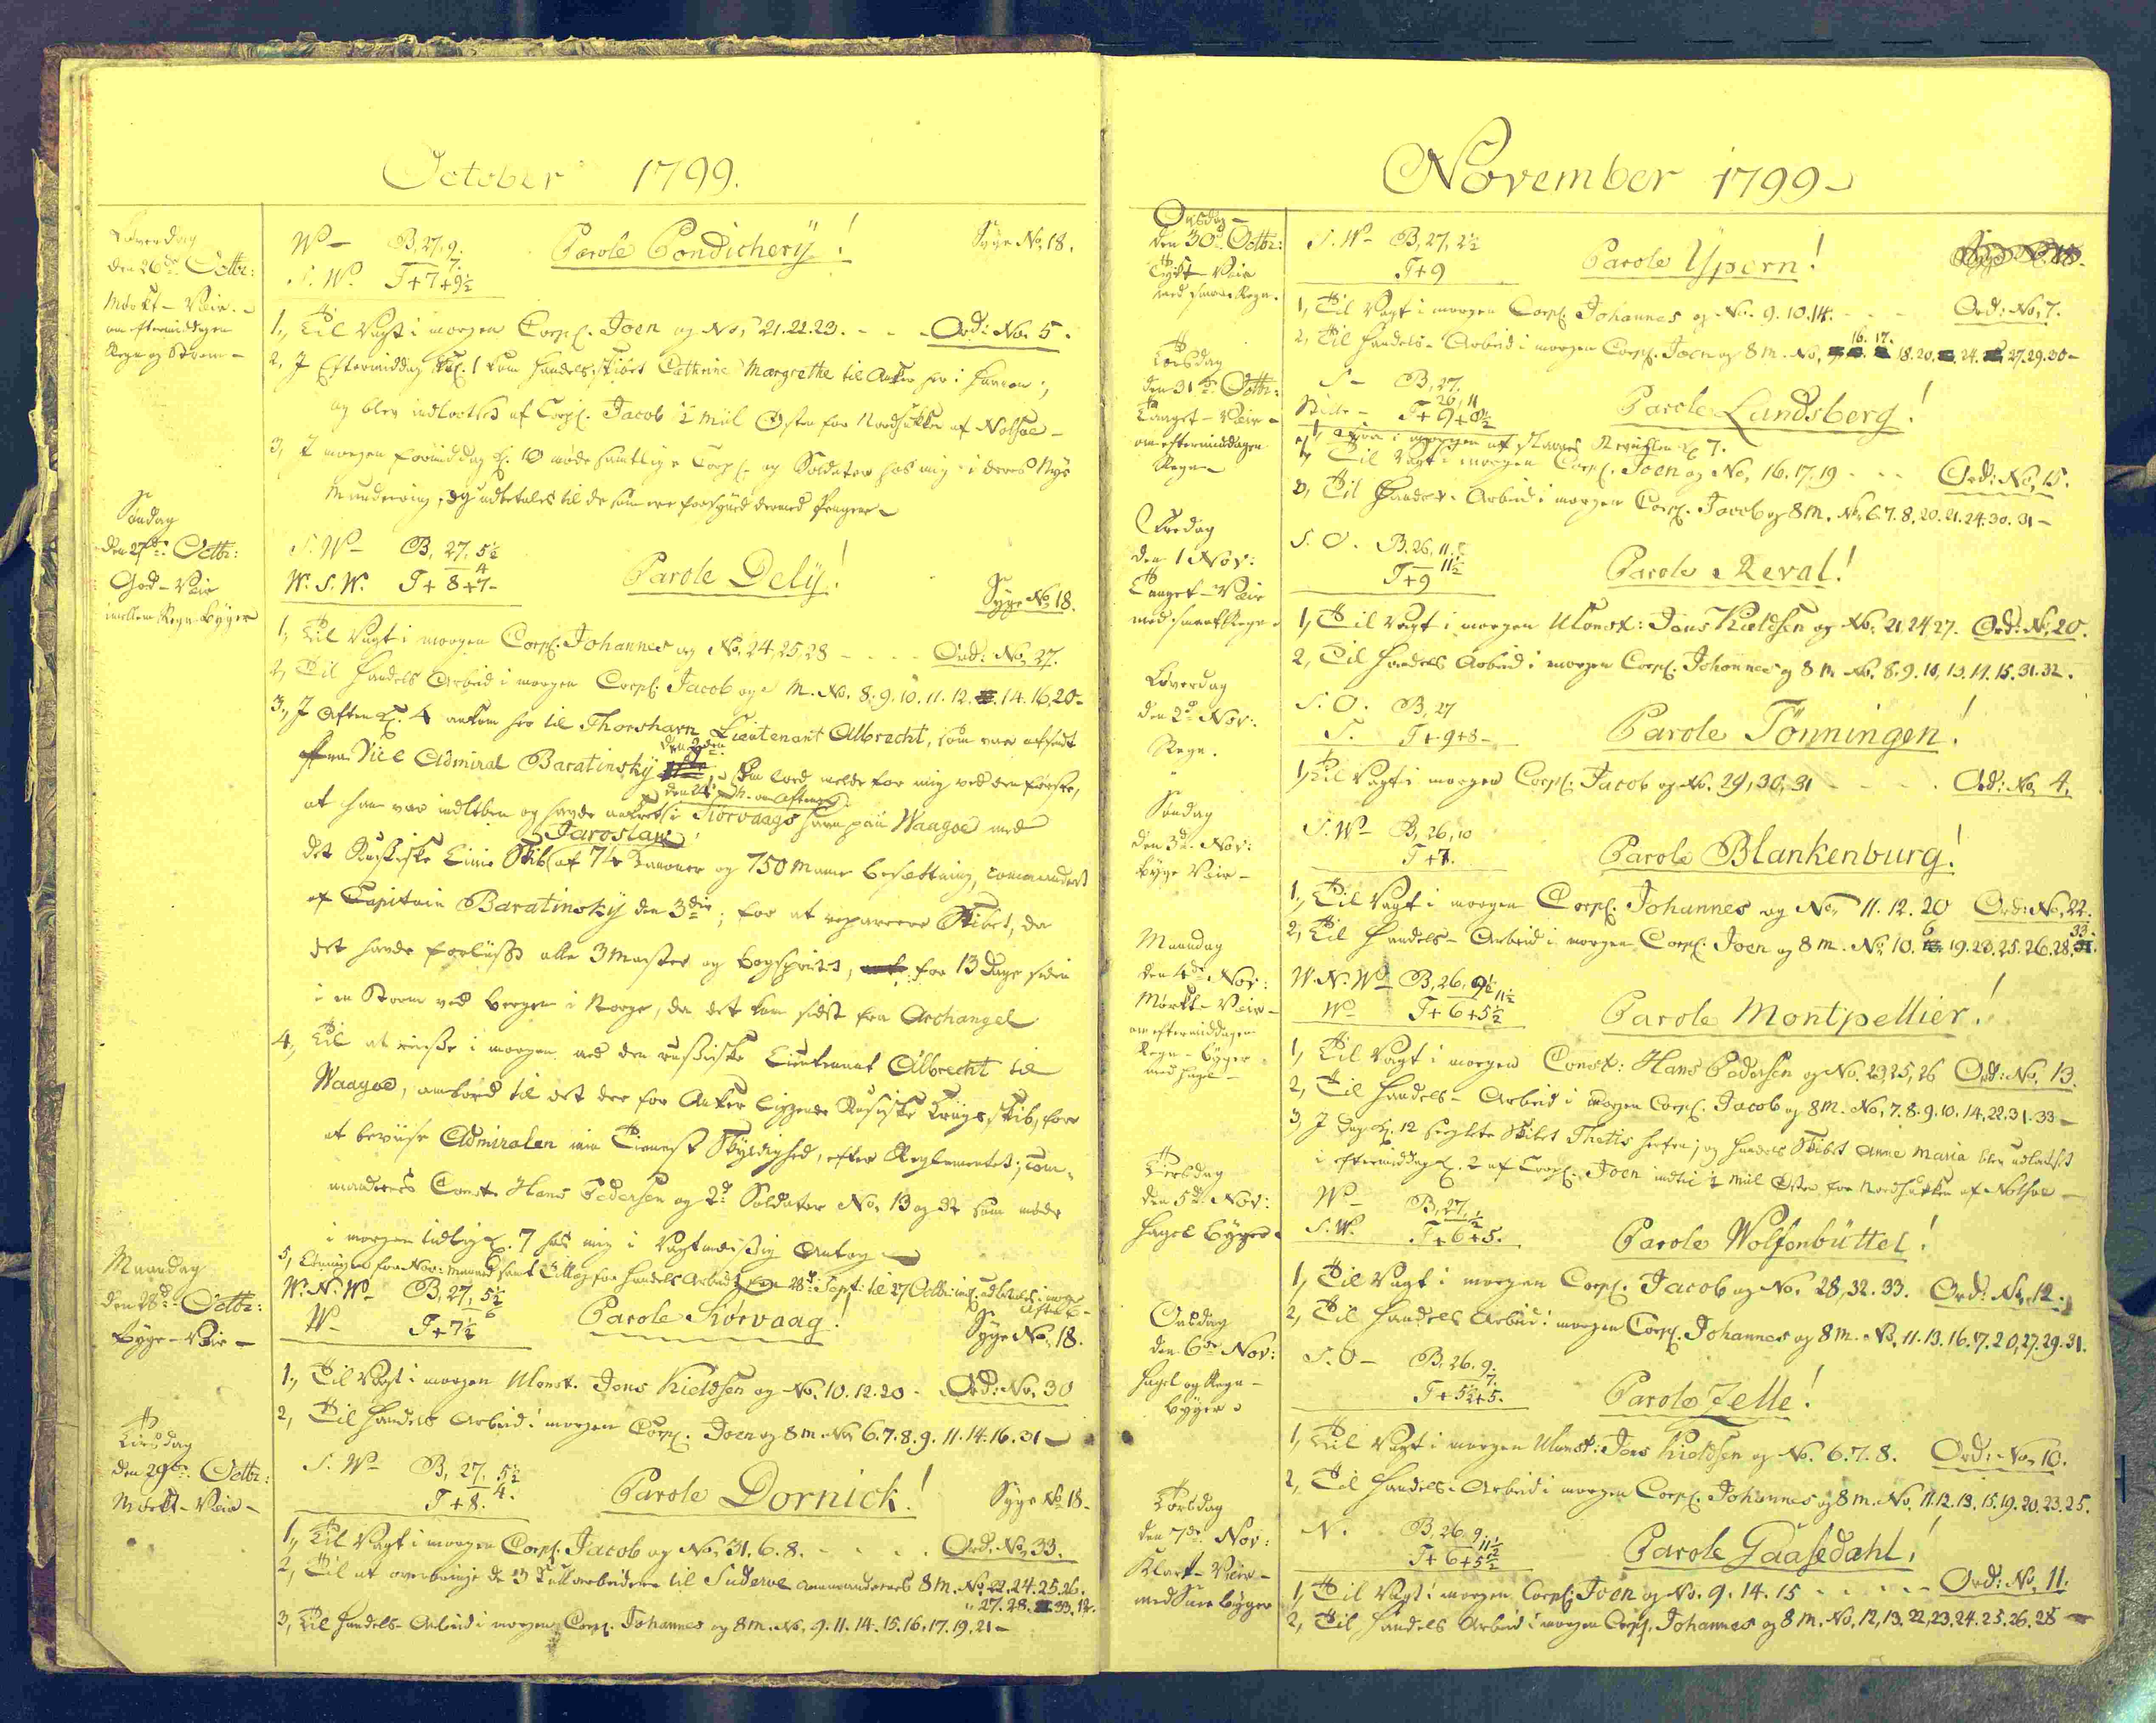 October 1799.
Løverdag
den 26de Octbr:
Mörkt - Veir -
om eftermiddagen
Regn og Storm -
W - B, 27, 9.
7.
S. W. T + 7 + 9½
Parole Pondichery!
Syge No, 18.
1, Til Vagt i morgen Corpl. Joen og No, 21. 22. 23. - - - Ord: No. 5.
2, I Eftermiddag Kl. 1 kom Handels, skibet Cathrine Margrethe til Anker her i Havnen;
og blev indlootset af Corpl. Jacob ½ Miil Østen for Nordhukken af Nolsøe -
3, I morgen formiddag Kl. 10 møde samtlige Corpl. og Soldater hos mig i deres Nye
Mundering, og udbetales til de som ere forsynede dermed Pengene -
Søndag
den 27de Octbr:
God - Veir
imellem Regn-byger
S. W - B, 27, 5½
4
W. S. W. T + 8 + 7 -
Parole Dely!
Syge No, 18.
1, Til Vagt i morgen Corpl. Johannes og No, 24, 25, 28 - - - - Ord: No, 27.
2, Til Handels Arbeid i morgen Corpl. Jacob og M. No. 8. 9. 10. 11. 12. 14. 16. 20 -
3, I Aften Kl. 4 ankom her til Thorshavn Lieutenant Albrecht, som var afsendt
fra Vice Admiral Baratinsky den 3die, lod melde for mig ved den første,
den 24de om Aftenen
at han var indløben og havde ankret i Sörvaags havn paa Waagøe med
Jaroslaw
det Russiske Linie Skib af 74 Canoner og 750 Mans besætning, commanderet
af Capitain Baratinsky den 3die; for at reparere Skibet, da
det havde forliist alle 3 Master og bogsprydet, for 13 Dage siden
i en Storm ved Bergen i Norge, da det kom sidst fra Archangel
4, Til at reise i morgen med den russiske Lieutenant Albrecht til
Waagøe, ombord til det der for Anker liggende Russiske Krigs, skib, for
at beviise Admiralen min Tieneste Skyldighed, efter Reglementet; com-
manderes Const. Hans Pedersen og 2de Soldater No, 13 og 32 som møde
i morgen tidlig Kl. 7 hos mig i Vagtmæssig Antog -
5, for Nov: Maaned samt Tillæg for Handels Arbeid fra 28de Sept: til 27 Octbr: incl. udbetales i morgen
Aften Kl. 6 -
Maandag
den 28de Octbr:
byge - Veir -
W. N. W - B, 27, 5½
6
W - T + 7½
Parole Sörvaag!
Syge No, 18.
1, Til Vagt i morgen Const. Jens Kieldsen og No, 10. 12. 20 - Ord: No. 30
2, Til Handels Arbeid i morgen Corpl. Joen og 8 M. No, 6. 7. 8. 9. 11. 14. 16. 31 -
Tirsdag
den 29de Octbr:
Mörkt - Veir -
S. W - B, 27, 5½
4.
T + 8.
Parole Dornick!
Syge No 18 -
1, Til Vagt i morgen Corpl. Jacob og No, 31. 6. 8. - - - - Ord: No, 33.
2, Til at overbringe de 3 til Suderöe commanderes 8 M. No, 22. 24. 25. 26.
27. 28. 33. 12.
3, Til Handels - Arbeid i morgen Corpl. Johannes og 8 M. No, 9. 11. 14. 15. 16. 17. 19. 21 -
November 1799 -
Onsdag -
den 30de Octbr:
Tykt - Veir
med smaae Regn.
S. W - B, 27, 2½
T + 9
Parole Ypern!
Syge No 18.
1, Til Vagt i morgen Corpl. Johannes og No. 9. 10. 14. - - - Ord: No, 7.
16. 17.
2, Til Handels - Arbeid i morgen Corpl. Joen og 8 M. No, 18. 20. 24. 27. 29. 30 -
Torsdag
den 31te Octbr:
Taaget - Veir -
om eftermiddagen
Regn -
S - B, 27.
26, 11
Stille - T + 9 + 8½
Parole Landsberg!
1, i morgen at slaaes Revellen Kl. 7.
2, Til Vagt i morgen Corpl. Joen og No, 16. 17. 19 - - - Ord: No, 15.
3, Til Handels - Arbeid i morgen Corpl. Jacob og 8 M. No, 6. 7. 8. 20. 21. 24. 30. 31 -
Fredag
den 1 Nov:
Taaget - Veir
med smaat Regn -
S. O. B. 26, 11.
11½
T + 9
Parole Reval!
1, Til Vagt i morgen Const: Jens Kieldsen og No. 21. 24. 27. Ord: No, 20.
2, Til Handels Arbeid i morgen Corpl. Johannes og 8 M. No, 8. 9. 10, 13. 14. 15. 31. 32.
Løverdag
den 2de Nov:
Regn.
S. O. B, 27
S. T + 9 + 8 -
Parole Tönningen!
1, Til Vagt i morgen Corpl. Jacob og No. 29, 30, 31 - - - - Ord: No, 4.
Søndag
den 3de Nov:
byge Veir -
S. W - B, 26, 10
T + 7.
Parole Blankenburg!
1, Til Vagt i morgen Corpl. Johannes og No, 11. 12. 20 Ord: No, 22.
6 33.
2, Til Handels - Arbeid i morgen Corpl. Joen og 8 M. No, 10. 19. 23. 25. 26. 28.
Maandag
den 4de Nov:
Mörkt - Veir -
om eftermiddagen
Regn - byger
med hagel -
W. N. W - B, 26, 9½
11½
W - T + 6 + 5½
Parole Montpellier!
1, Til Vagt i morgen Const: Hans Pedersen og No. 23, 25, 26 Ord: No, 13.
2, Til Handels - Arbeid i morgen Corpl. Jacob og 8 M. No, 7. 8. 9. 10. 14. 22. 31. 33 -
3, I Dag Kl. 12 seglede Skibet Thetis herfra; og Handels Skibet Anne Maria blev udlootset
i eftermiddag Kl. 2 af Corpl. Joen indtil ½ Miil Østen for Nordhukken af Nolsøe -
Tirsdag
den 5te Nov:
Hagel byger -
W - B, 27, ½
S. W. T + 6 + 5.
Parole Wolfenbüttel!
1, Til Vagt i morgen Corpl. Jacob og No. 28, 32. 33. Ord: No, 12.
2, Til Handels Arbeid i morgen Corpl. Johannes og 8 M. No, 11. 13. 16. 17. 20, 27. 29. 31.
Onsdag
den 6te Nov:
Hagel og Regn -
byger -
S. O - B, 26, 9.
7.
T + 5½ + 5.
Parole Zelle!
1, Til Vagt i morgen Const: Jens Kieldsen og No. 6. 7. 8. Ord: No, 10.
2, Til Handels - Arbeid i morgen Corpl. Johannes og 8 M. No, 11. 12. 13. 15. 19. 20. 23. 25.
Torsdag
den 7de Nov:
Klart - Veir -
med Snee byger
N. B, 26, 9
11½
T + 6 + 5½
Parole Gaasedahl!
1, Til Vagt i morgen Corpl: Joen og No. 9. 14. 15 - - - - - Ord: No, 11.
2, Til Handels Arbeid i morgen Corpl. Johannes og 8 M. No, 12, 13. 22, 23. 24. 25. 26. 28 -